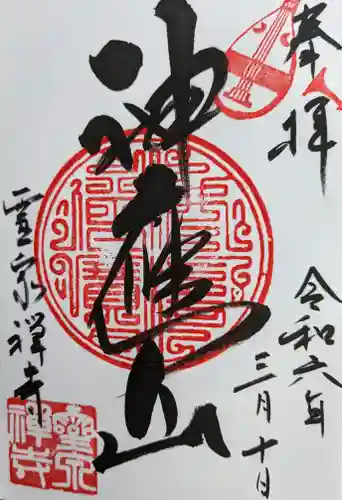 奉拝
令和六年
三月十日
神應山
霊泉禅寺
靈泉
禅寺